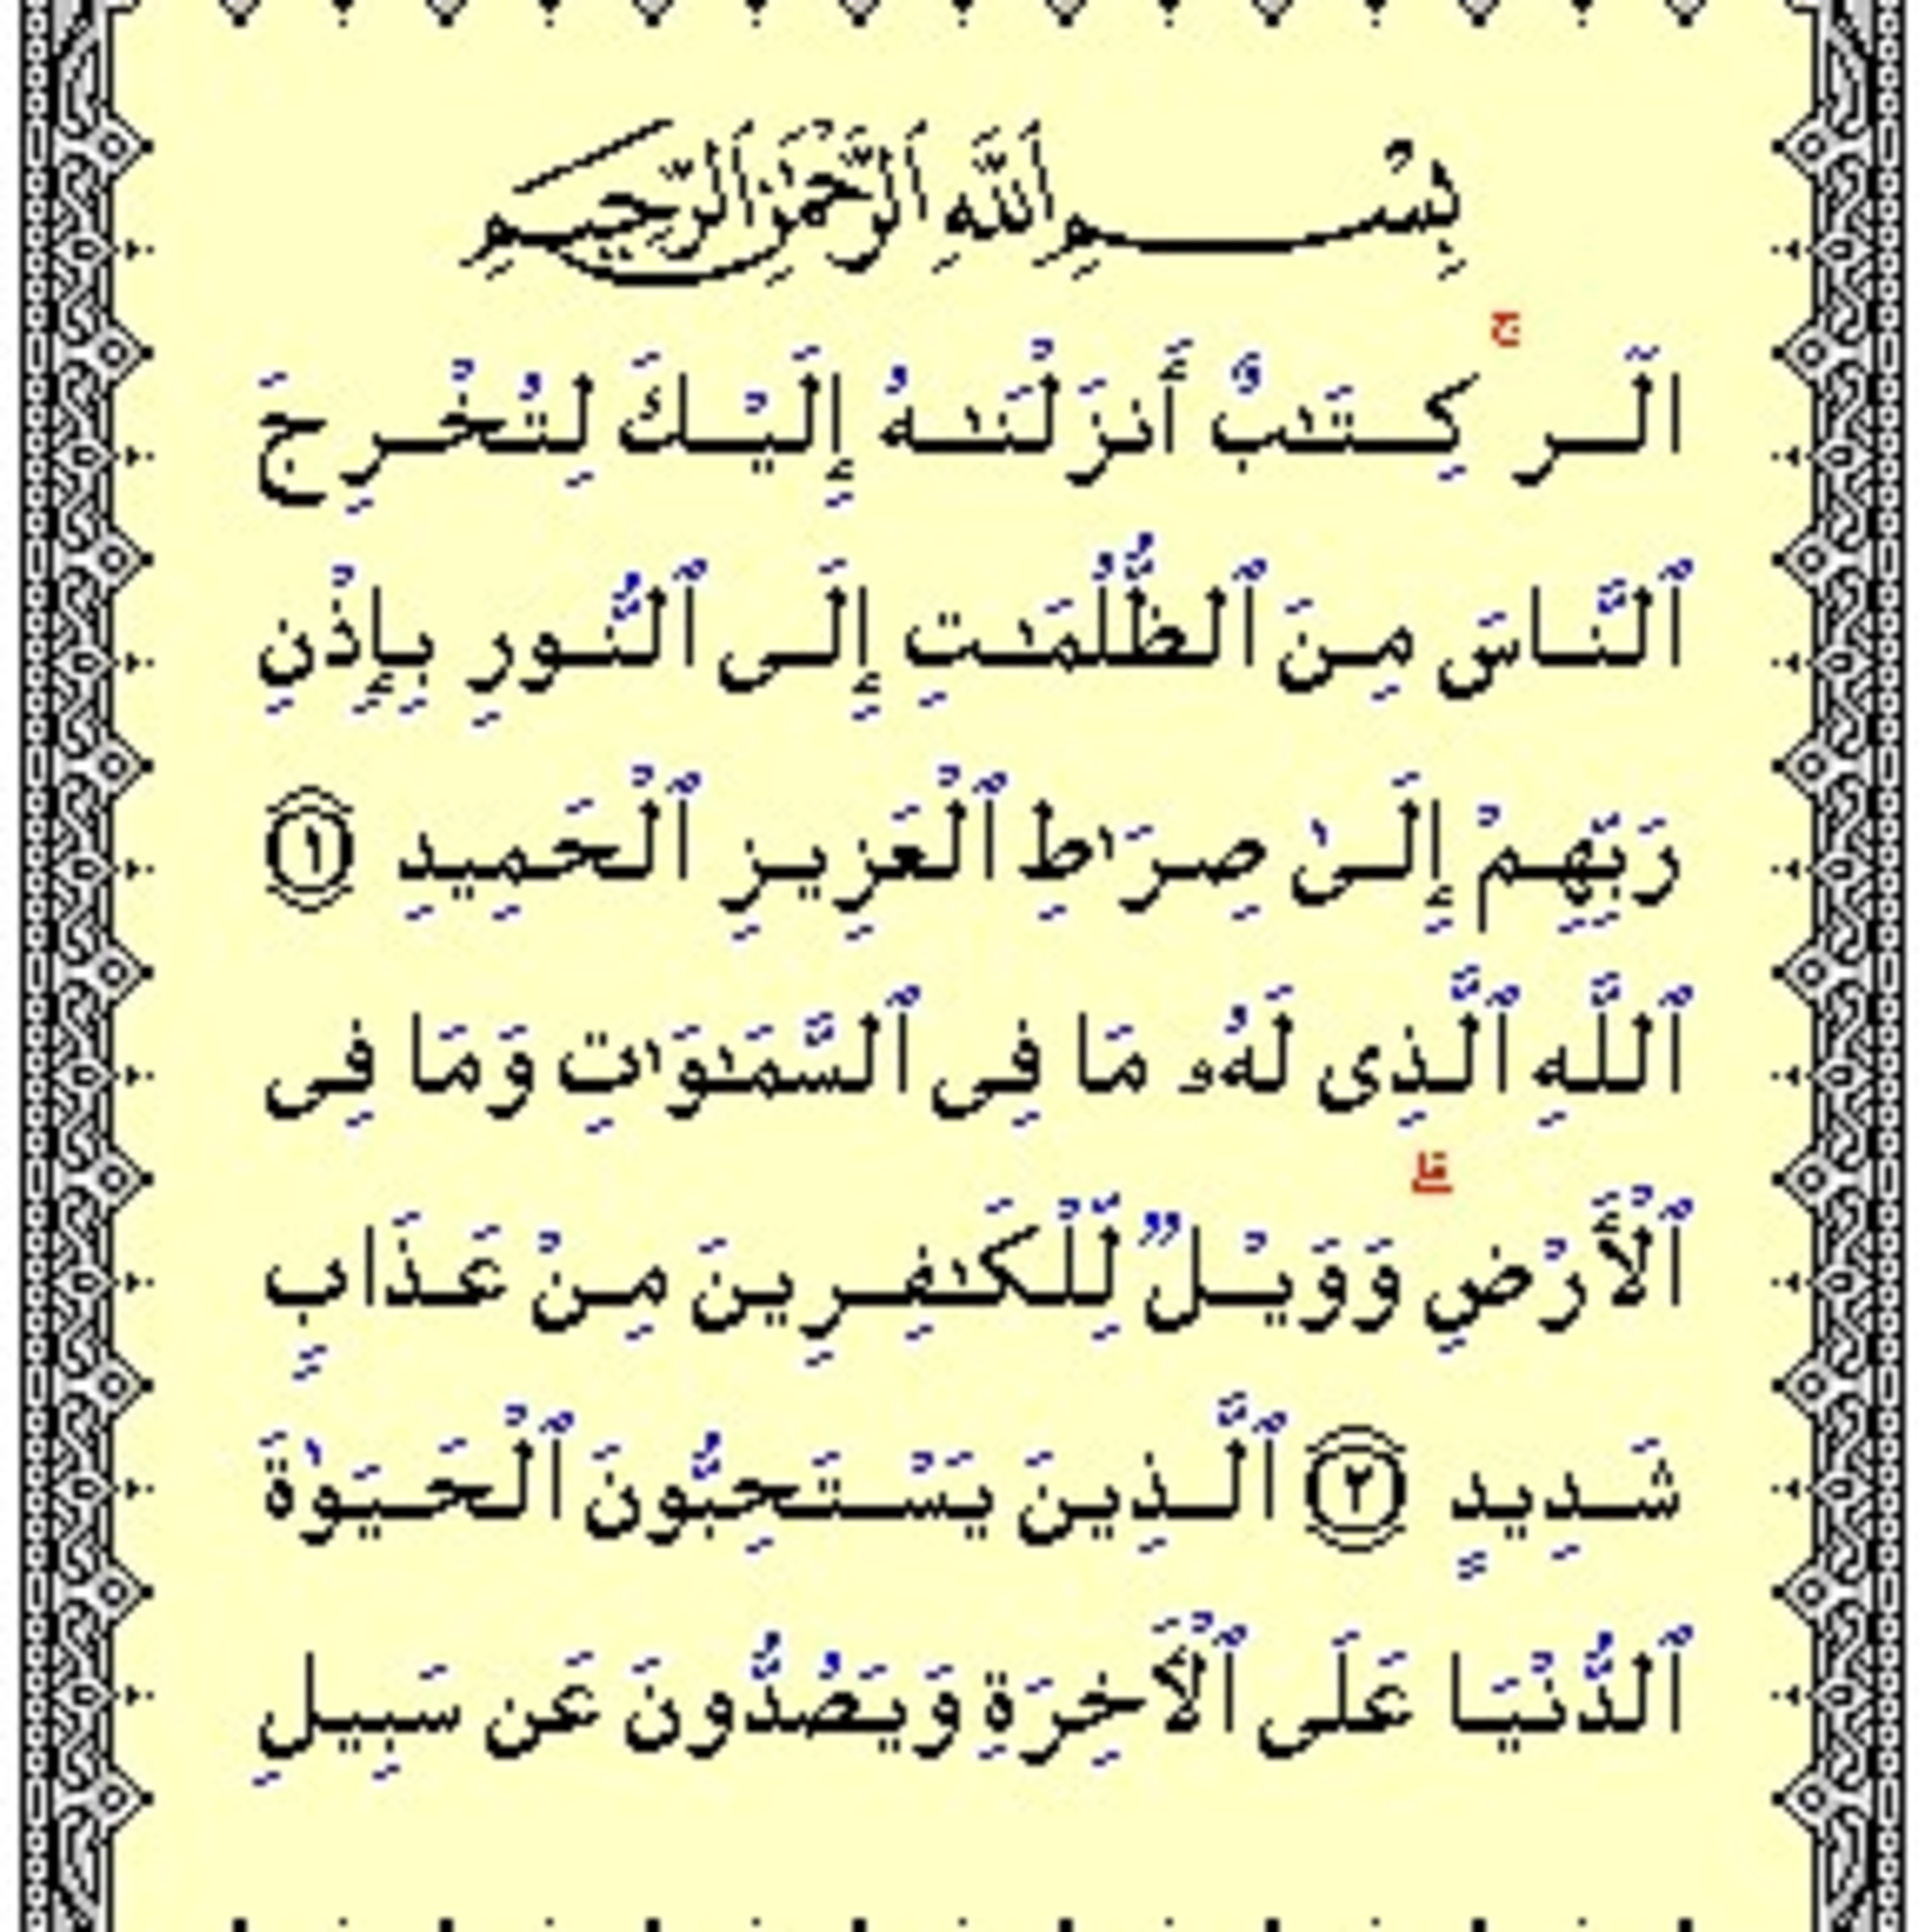 بِسْمِ ٱللَّهِ ٱلرَّحْمَٰنِ ٱلرَّحِيمِ
الٓر ۚ كِتَٰبٌ أَنزَلْنَٰهُ إِلَيْكَ لِتُخْرِجَ
ٱلنَّاسَ مِنَ ٱلظُّلُمَٰتِ إِلَى ٱلنُّورِ بِإِذْنِ
رَبِّهِمْ إِلَىٰ صِرَٰطِ ٱلْعَزِيزِ ٱلْحَمِيدِ ١
ٱللَّهِ ٱلَّذِى لَهُۥ مَا فِى ٱلسَّمَٰوَٰتِ وَمَا فِى
ٱلْأَرْضِ ۗ وَوَيْلٌ لِّلْكَٰفِرِينَ مِنْ عَذَابٍ
شَدِيدٍ ٢ ٱلَّذِينَ يَسْتَحِبُّونَ ٱلْحَيَوٰةَ
ٱلدُّنْيَا عَلَى ٱلْأَخِرَةِ وَيَصُدُّونَ عَن سَبِيلِ